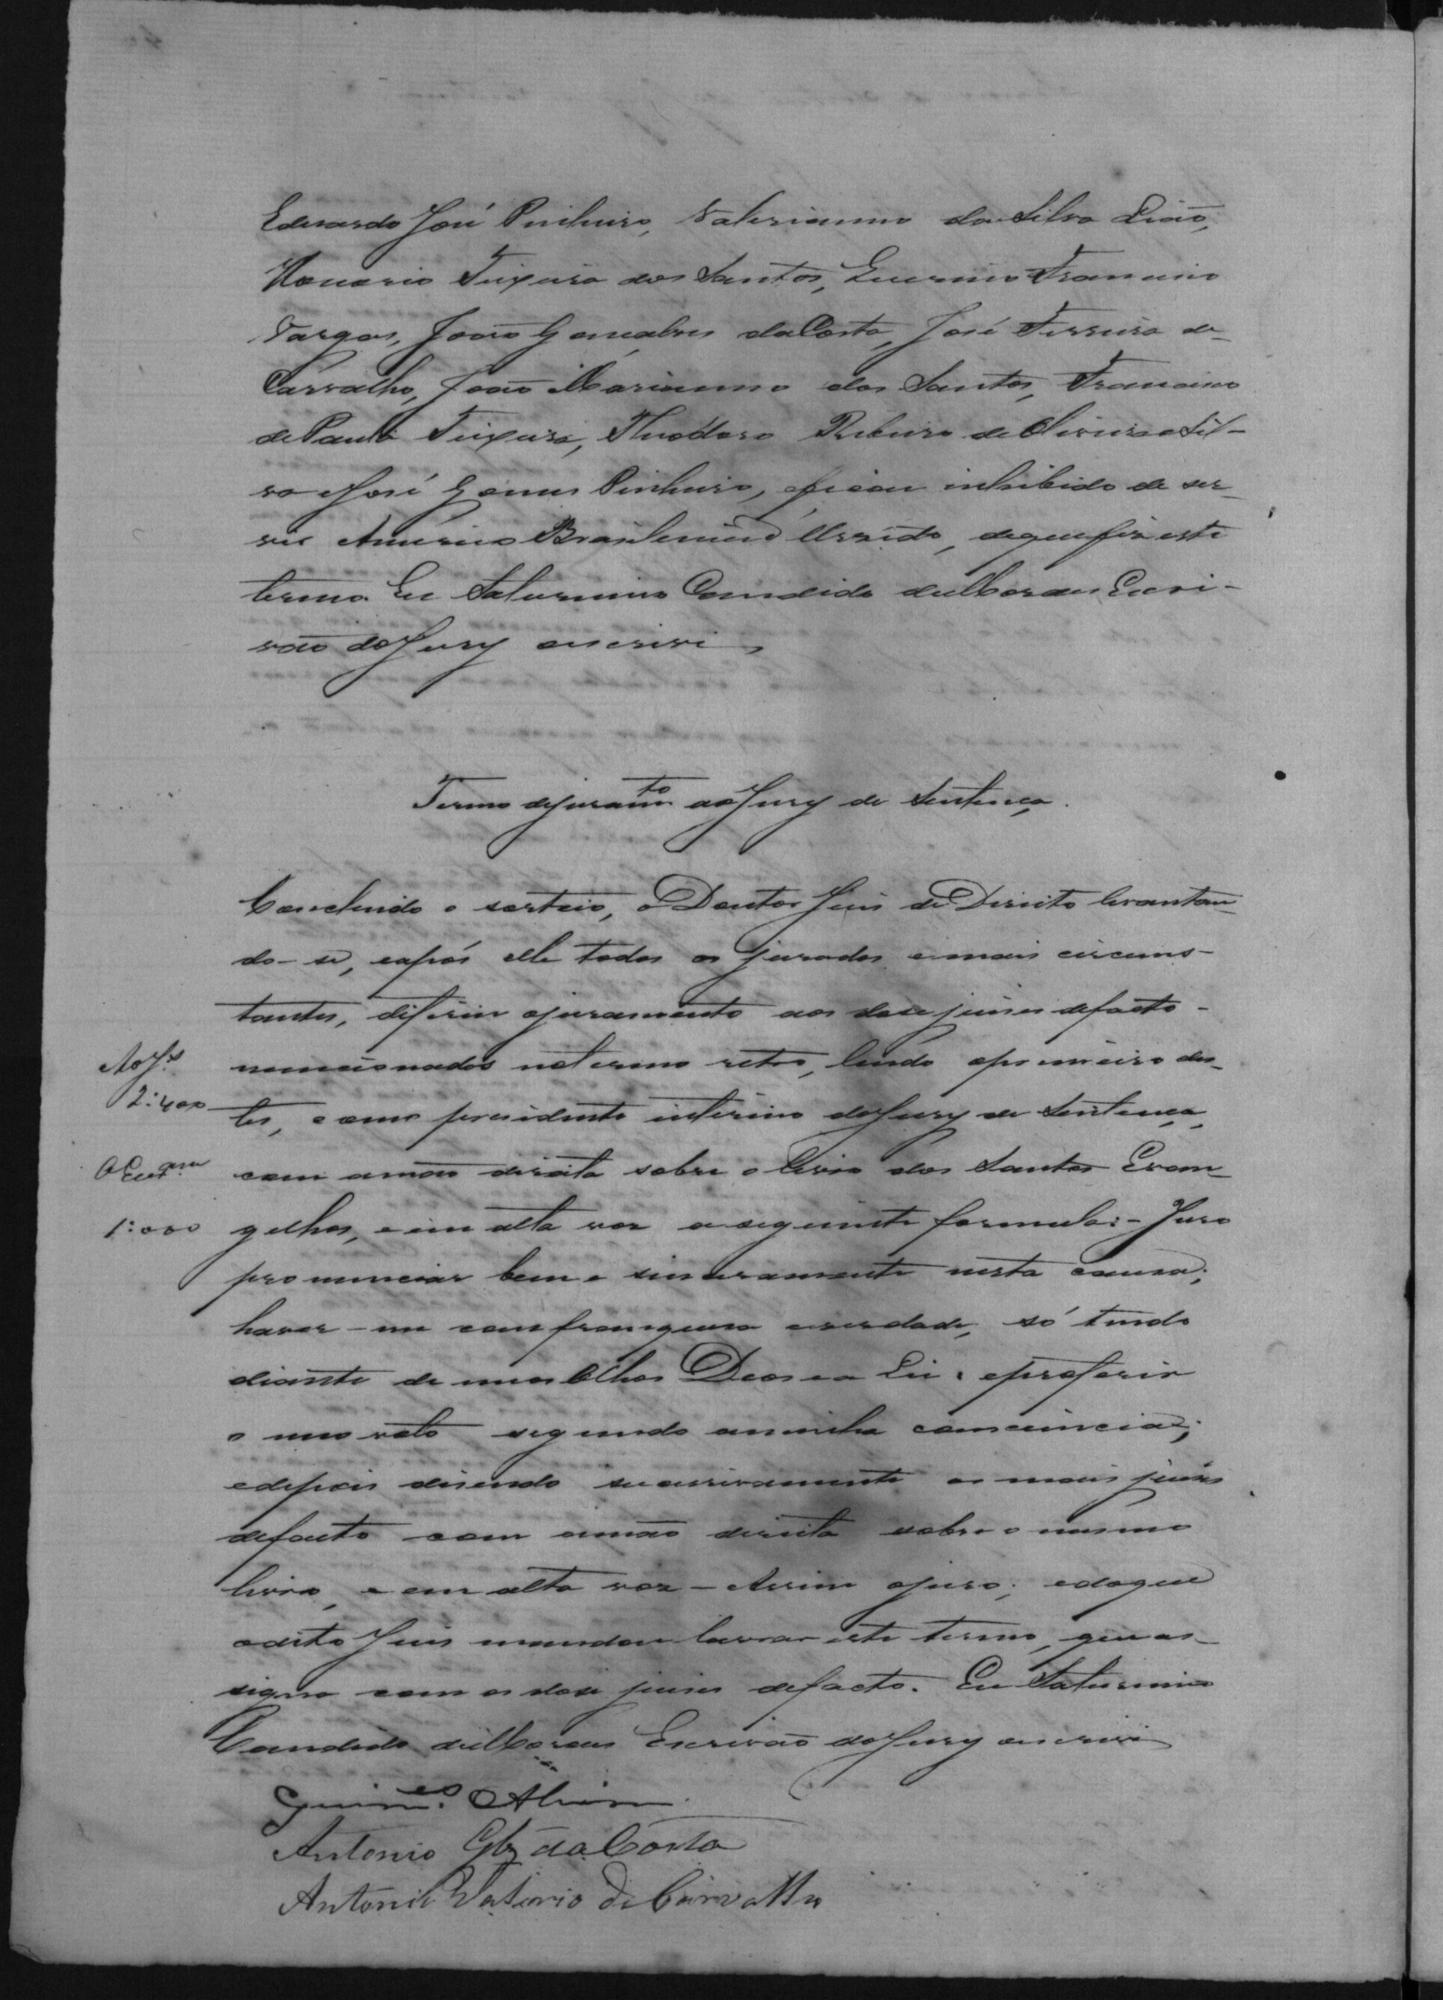 Eduardo José Pinheiro, Valerianno da Silva Leão,
Honorio Teixeira dos Santos, Francisco
Vargas, João Gonçalves da Costa, José Ferreira de
Carvalho, João Marianno dos Santos, Francisco
de Paula Teixeira, Theodoro Ribeiro de Oliveira e Sil-
va e José Gomes Pinheiro, e ficou inhibido de ser-
vir Americo Brasileiro, de que fiz este
termo. Eu Saturnino Candido de Moraes Escri-
vão do Jury escrevi
Termo de juramto ao Jury de Sentença.
Concluido o sorteio, o Doutor Juis de Direito levantan-
do-se, e após elle todos os jurados e mais circuns-
tantes, diferiu o juramento aos dose juises de facto
mencionados no termo retro, lendo o primeiro des-
tes, como presidente interino do Jury de Sentença,
com a mão direita sobre o livro dos Santos Evan-
gelhos, e em alta voz a seguinte formula:- Juro
pronunciar bem e sinceramente nesta causa;
haver-me com franquesa e verdade, só tendo
diante de meus olhos Deos e a Lei; e proferir
o meo voto segundo a minha consciencia;
e depois disendo sucessivamente os mais juises
de facto com a mão direita sobre o mesmo
livro, e em alta voz - Assim o juro; e do que
o dito Juis mandou lavrar este termo, que as-
signa com os dose juises de facto. Eu Saturnino
Candido de Moraes Escrivão do Jury escrevi
Ao J.
2:400
1:000
Guimes. Alvim.
Antonio Glz da Costa
Antonio Valerio de Carvalho